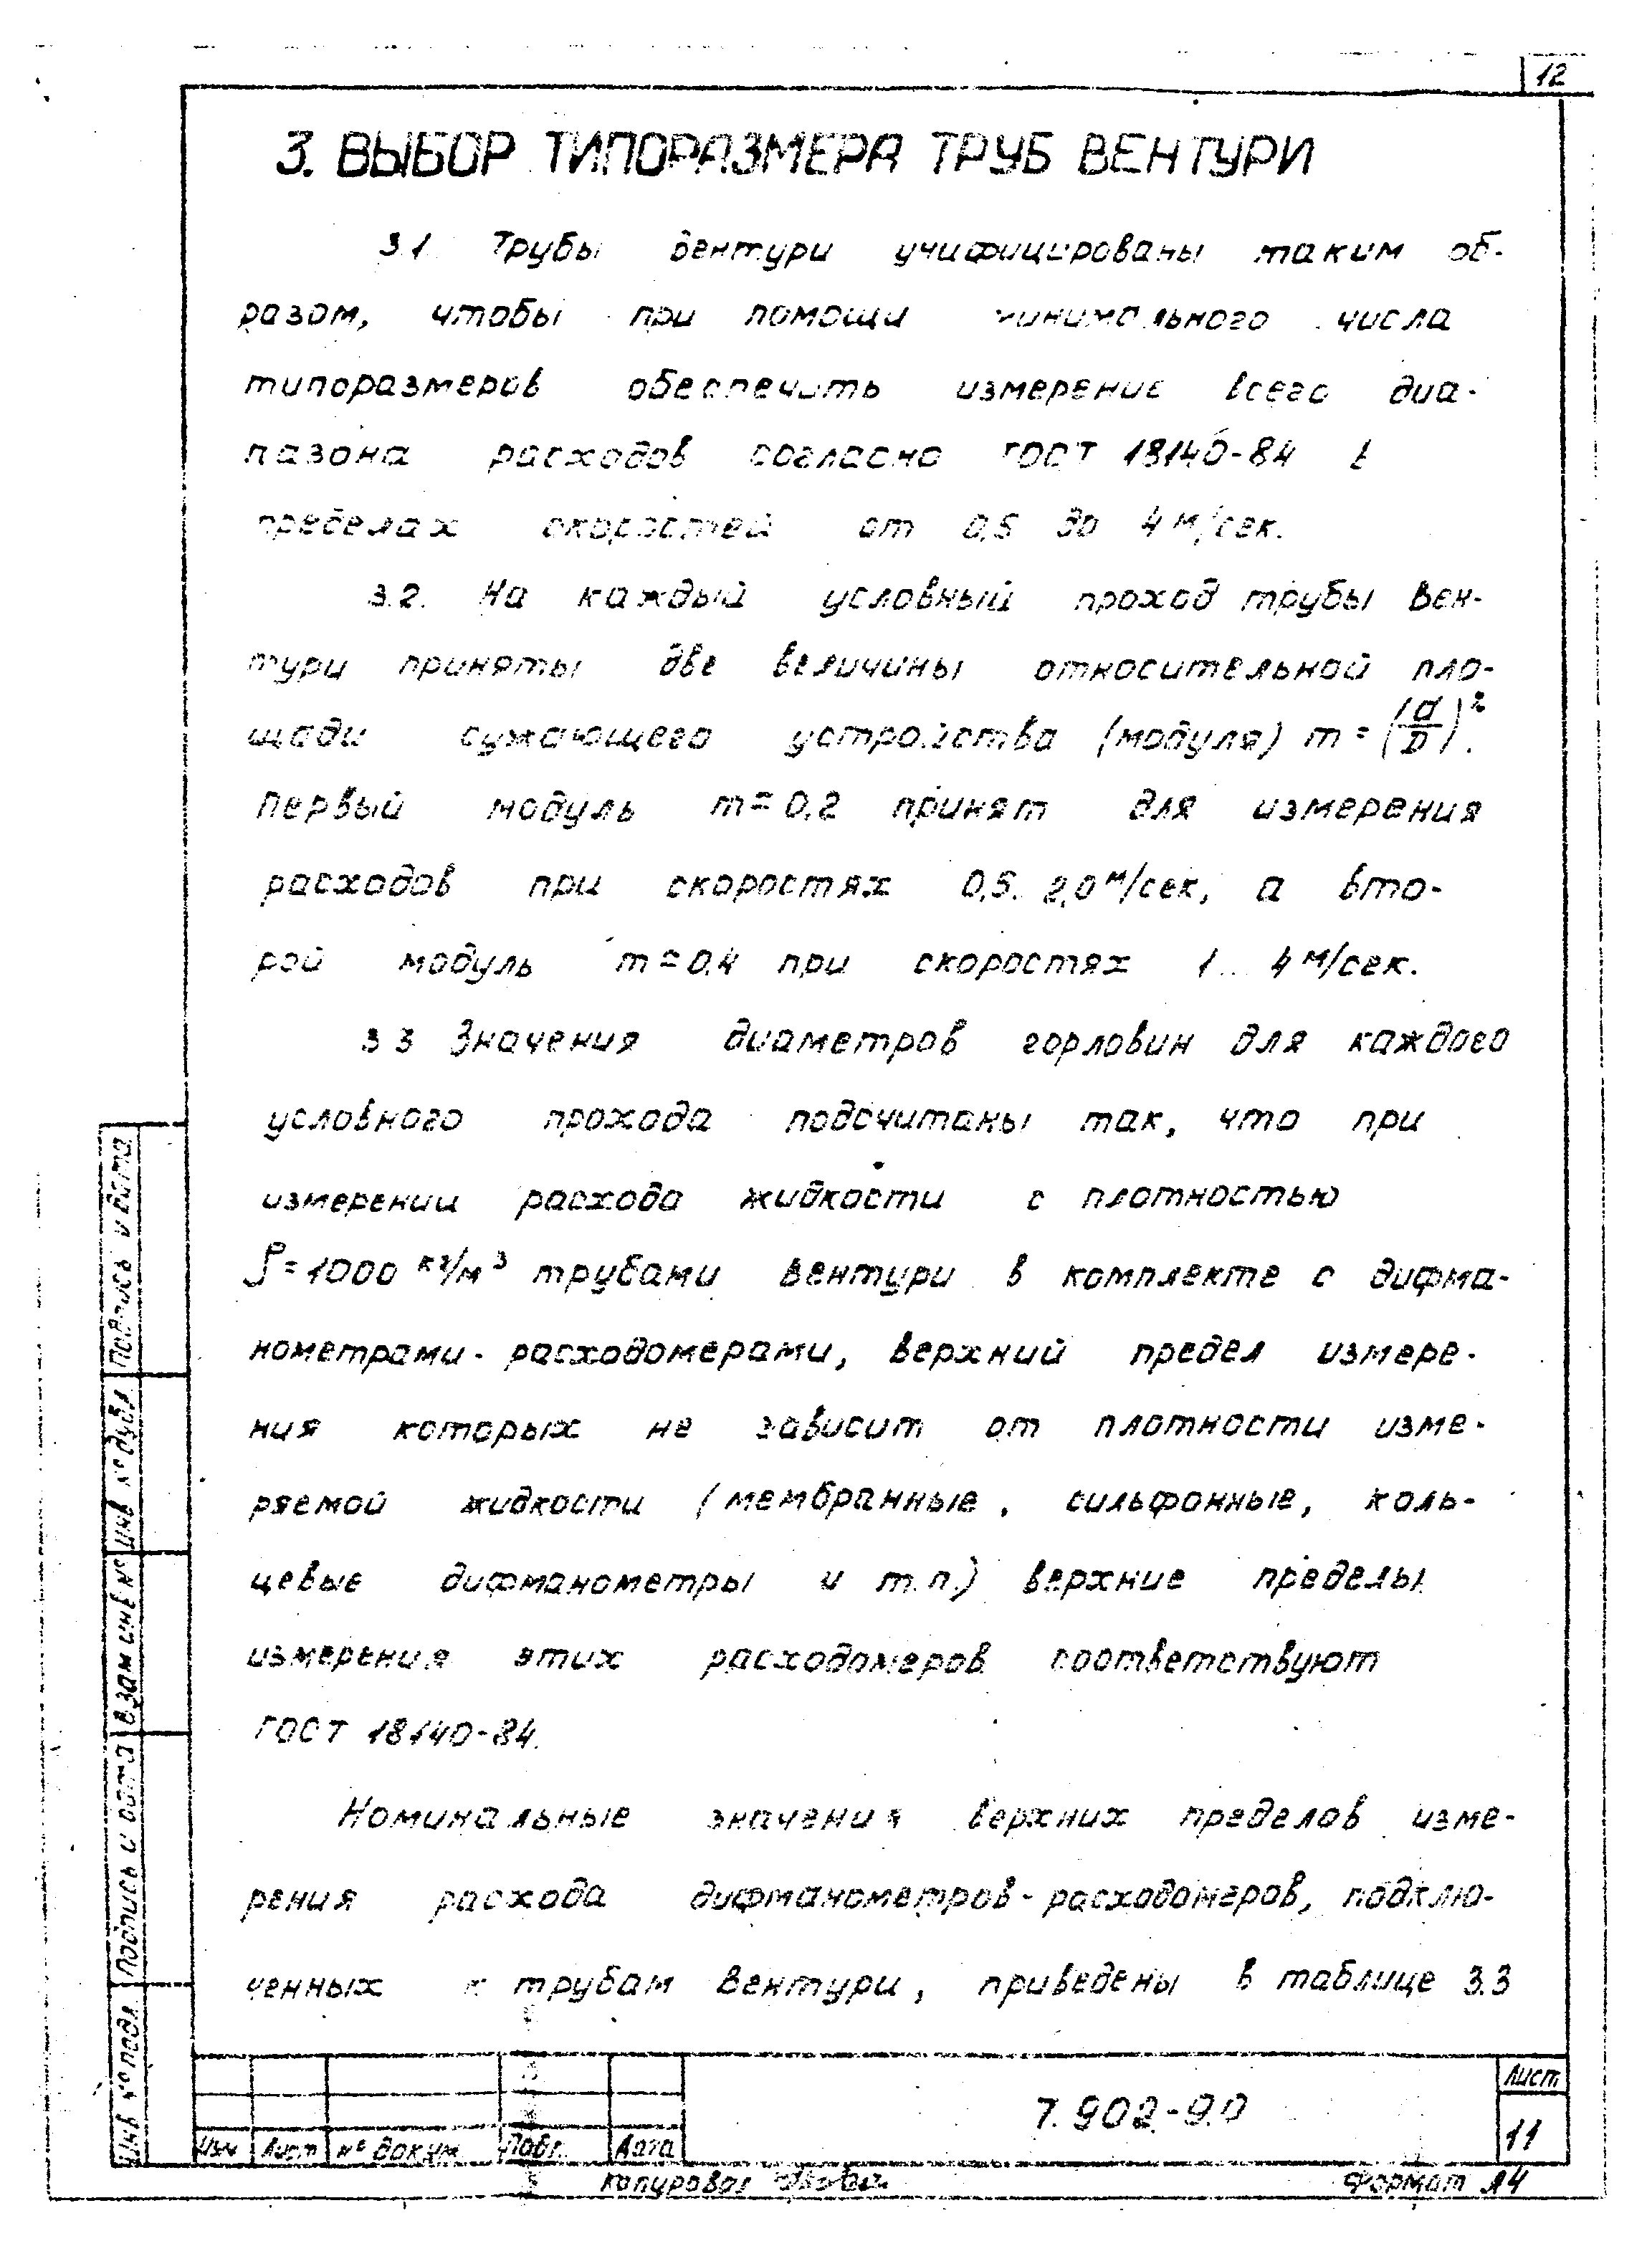 12
3. ВЫБОР ТИПОРАЗМЕРА ТРУБ ВЕНТУРИ
3.1 Трубы Вентури унифицированы таким об-
разом, чтобы при помощи минимального числа
типоразмеров обеспечить измерение всего диа-
пазона расходов согласно ГОСТ 18140-84 в
пределах скоростей от 0,5 до 4 м/сек.
3.2. На каждый условный проход трубы Вен-
тури приняты две величины относительной пло-
щади сужающего устройства (модуля) m = (d/D)².
Первый модуль m = 0,2 принят для измерения
расходов при скоростях 0,5.. 2,0 м/сек, а вто-
рой модуль m = 0,4 при скоростях 1.. 4 м/сек.
3.3 Значения диаметров горловин для каждого
условного прохода подсчитаны так, что при
измерении расхода жидкости с плотностью
ρ = 1000 кг/м³ трубами Вентури в комплекте с дифма-
нометрами-расходомерами, верхний предел измере-
ния которых не зависит от плотности изме-
ряемой жидкости (мембранные, сильфонные, коль-
цевые дифманометры и т.п.) верхние пределы
измерения этих расходомеров соответствуют
ГОСТ 18140-84.
Номинальные значения верхних пределов изме-
рения расхода дифманометров-расходомеров, подклю-
ченных к трубам Вентури, приведены в таблице 3.3
Подпись и дата
Инв № дубл
Взам инв №
Подпись и дата
Инв № подл
Изм Лист № докум Подп. Дата
7.902-9.0
Лист
11
Копировал
Формат А4